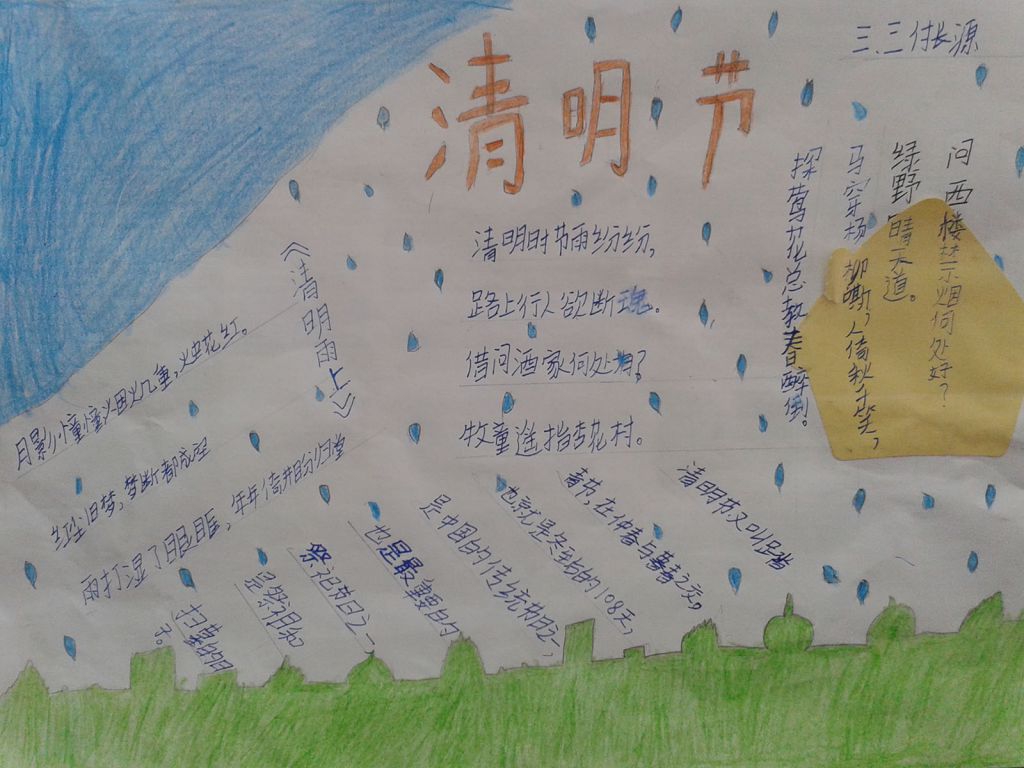 清明节
三、三 付长源
清明时节雨纷纷,
路上行人欲断魂。
借问酒家何处有?
牧童遥指杏花村。
问西楼禁烟何处好?
绿野晴天道。
马穿杨柳嘶,人倚秋千笑,
探莺花总教春醉倒。
《清明雨上》
月影幢幢烟火几重,烛花红。
红尘旧梦,梦断都成空
雨打湿了眼眶,年年倚井盼归堂
清明节又叫踏
青节,在仲春与暮春之交,
也就是冬至的108天,
是中国的传统节日之一,
也是最重要的
祭祀节日之一
是祭祖和
扫墓的日
子。